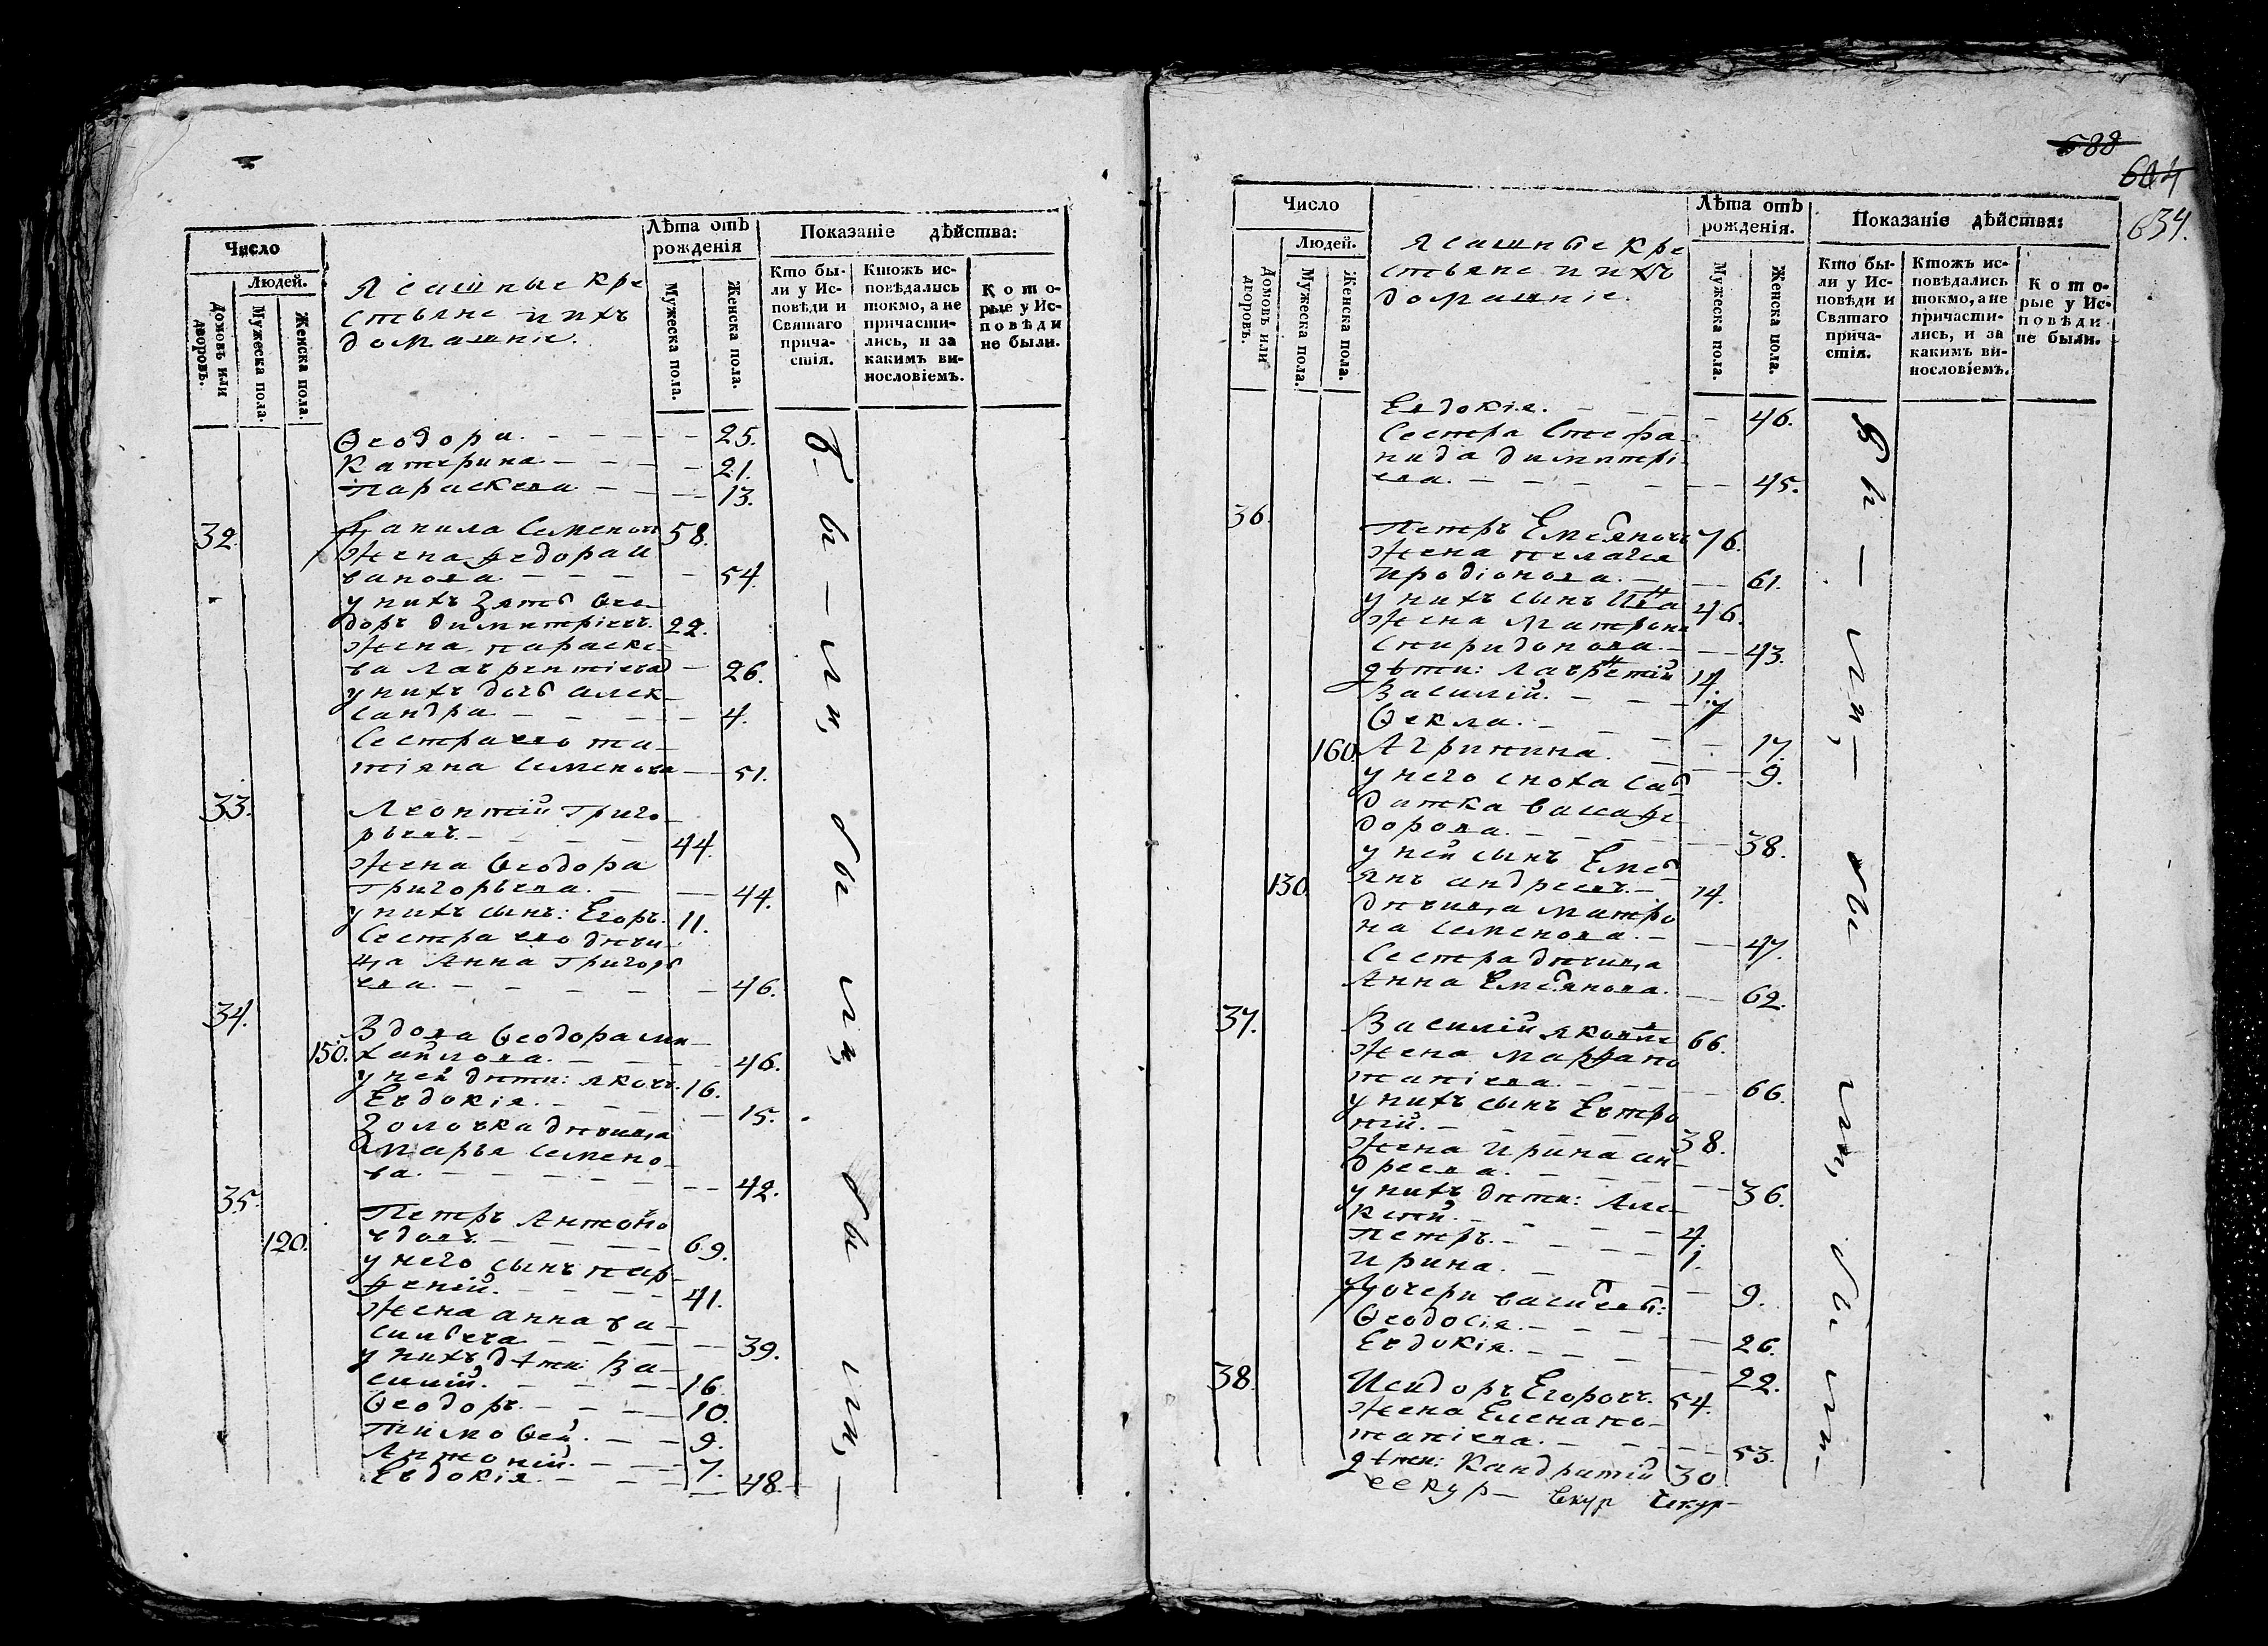 Число
Людей.
Домовъ или дворовъ.
Мужеска пола.
Женска пола.
Ясашные кре
стьяне и ихъ
домашніе.
Лѣта отъ
рожденія
Мужеска пола.
Женска пола.
Показаніе дѣйства:
Кто бы-
ли у Ис-
повѣди и
Святаго
прича-
стія.
Ктожъ ис-
повѣдались
токмо, а не
причасти-
лись, и за
какимъ ви-
нословіемъ.
Кото-
рые у Ис-
повѣди
не были.
Ѳеодора. 25.
Катерина 21.
Параскева 13.
32. Данила Семеновъ 58.
Жена Федора И
ванова 54.
у нихъ зять Ѳео-
доръ Димитріевъ 22.
Жена Параске-
ва Лаврентіева 26.
у нихъ дочь Алек-
сандра 4.
Сестра ево Та-
тіяна Семенова 51.
33. Леонтій Григо-
рьевъ. 44.
Жена Ѳеодора
Григорьева. 44.
у нихъ сынъ: Егоръ. 11.
Сестра ево дѣви-
ца Анна Григорь
ева. 46.
34. Вдова Ѳеодора Ми-
150. хайлова. 46.
у ней дѣти: Яковъ. 16.
Евдокія. 15.
Золовка дѣвица
Марья Семено-
ва. 42.
35. Петръ Антоно
120. 69.
у него сынъ Пар-
феній. 41.
Жена Анна Ва-
сильева 39.
у нихъ дѣти: Ва-
силій. 16.
Ѳеодоръ. 10.
Тимоѳей. 9.
Антоній. 7.
Евдокія. 48.
бы-ли, бы ли, бы ли,-
588
604
634.
Число
Людей.
Домовъ или дворовъ.
Мужеска пола.
Женска пола.
Ясашные кре
стьяне и ихъ
домашніе.
Лѣта отъ
рожденія.
Мужеска пола.
Женска пола.
Показаніе дѣйства:
Кто бы-
ли у Ис-
повѣди и
Святаго
прича-
стія.
Ктожъ ис-
повѣдались
токмо, а не
причасти-
лись, и за
какимъ ви-
нословіемъ.
Кото-
рые у Ис-
повѣди
не были.
Евдокія. 46.
Сестра Степа-
нида Димитрі-
ева. 45.
36. Петръ Емельяновъ 76.
Жена Пелагея
Иродіонова. 61.
у нихъ сынъ Иванъ 46.
Жена Матрона
Спиридонова. 43.
дѣти: Лаврентій 14.
Василій. 7
Ѳекла. 17.
160. Агрипина. 9.
у него сноха сол-
датка Васса Фе-
дорова. 38.
у ней сынъ Емель
130. янъ Андреевъ. 14.
дѣвица Матро
на Семенова. 47.
Сестра дѣвица
Анна Емельянова. 62.
37. Василій Яковле 66.
Жена Марфа По
тапіева. 66.
у нихъ сынъ Евтро
пій. 38.
Жена Ирина Ан-
дреева. 36.
у нихъ дѣти: Але-
ксѣй. 4.
Петръ. 1.
Ирина. 9.
Дочери Васильевы:
Ѳеодосія. 26.
Евдокія. 22.
38. Исидоръ Егоровъ. 54.
Жена Елена По-
тапіева. 53.
дѣти: Кандратій 30
бы-ли,- бы ли, бы ли-